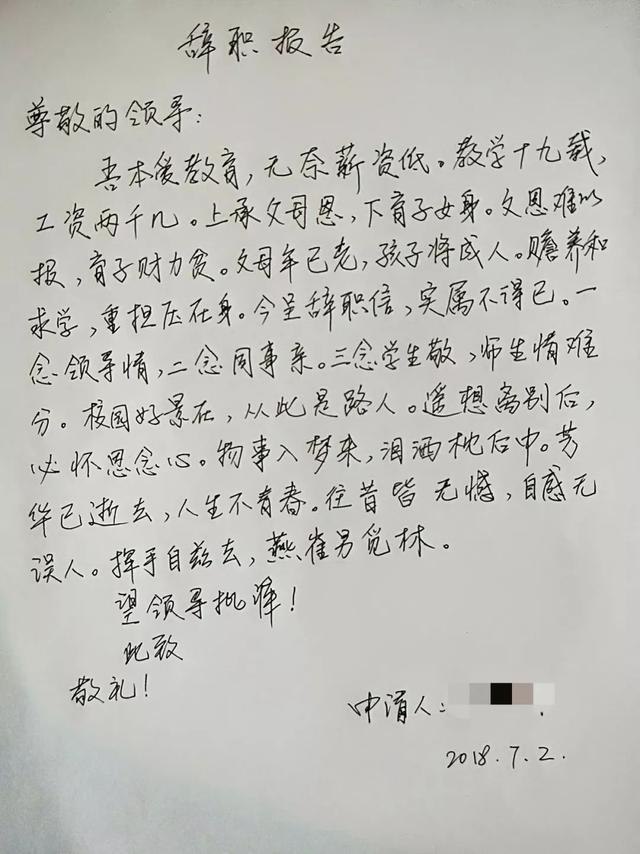 辞职报告
尊敬的领导：
吾本爱教育，无奈薪资低。教学十九载，
工资两千几。上承父母恩，下育子女身。父恩难以
报，育子财力贫。父母年已老，孩子将成人。赡养和
求学，重担压在身。今呈辞职信，实属不得已。一
念领导情，二念同事亲。三念学生敬，师生情难
分。校园好景在，从此是路人。遥想离别后，
必怀思念心。物事入梦来，泪洒枕后中。芳
华已逝去，人生不青春。往昔皆无憾，自感无
误人。挥手自兹去，燕雀另觅林。
望领导批准！
此致
敬礼！
申请人：
2018.7.2.